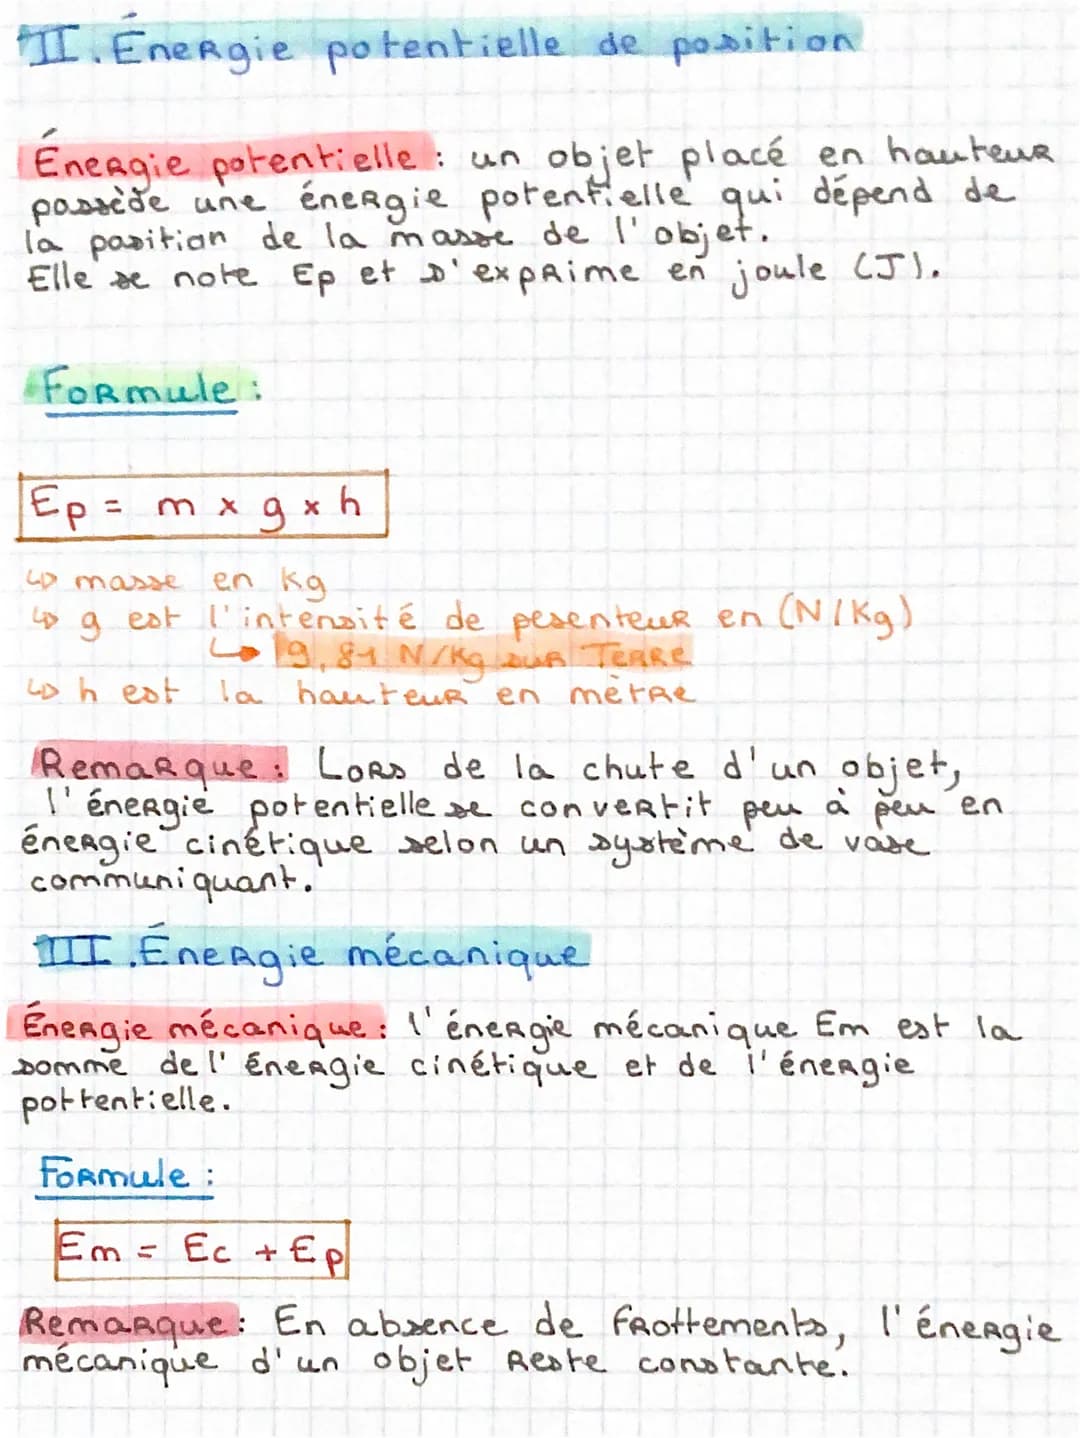 II. Énergie potentielle de position
Énergie potentielle : un objet placé en hauteur
possède une énergie potentielle qui dépend de
la position de la masse de l'objet.
Elle se note Ep et s'exprime en joule (J).
Formule :
Ep = m x g x h
↳ masse en kg
↳ g est l'intensité de pesenteur en (N/Kg)
↳ 9,81 N/Kg sur TERRE
↳ h est la hauteur en mètre
Remarque : Lors de la chute d'un objet,
l'énergie potentielle se convertit peu à peu en
énergie cinétique selon un système de vase
communiquant.
III. Énergie mécanique
Énergie mécanique : l'énergie mécanique Em est la
somme de l'énergie cinétique et de l'énergie
pottentielle.
Formule :
Em = Ec + Ep
Remarque : En absence de frottements, l'énergie
mécanique d'un objet reste constante.